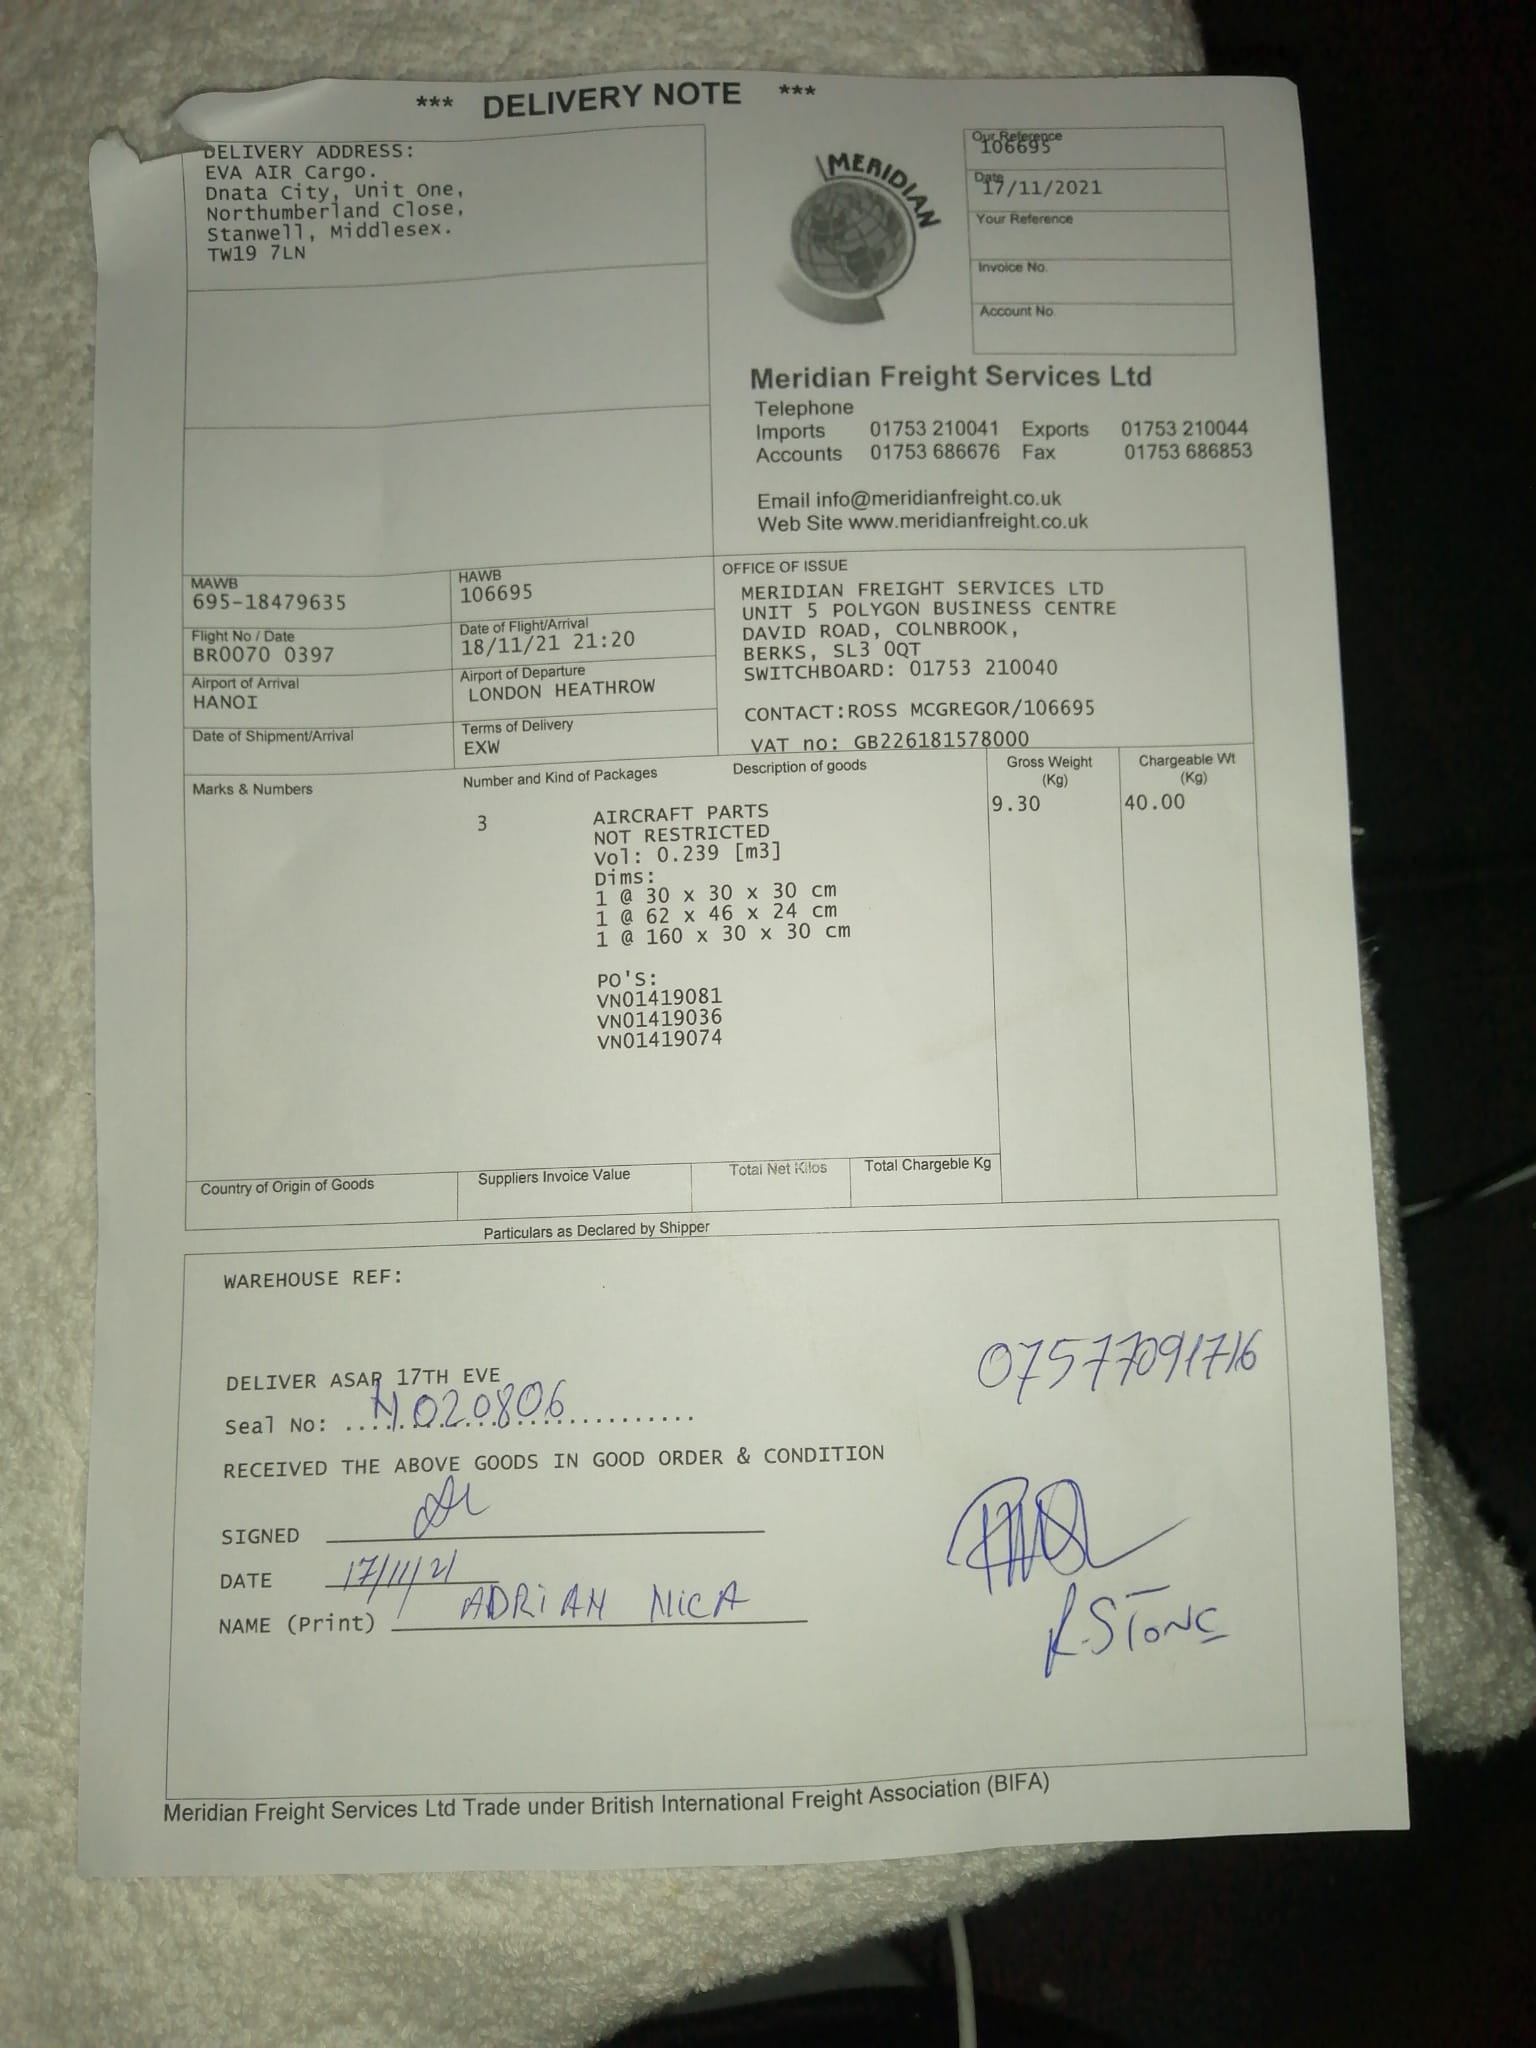 *** DELIVERY NOTE ***
DELIVERY ADDRESS:
EVA AIR Cargo.
Dnata City, Unit One,
Northumberland Close,
Stanwell, Middlesex.
TW19 7LN
MERIDIAN
Our Reference
106695
Date
17/11/2021
Your Reference
Invoice No.
Account No
Meridian Freight Services Ltd
Telephone
Imports 01753 210041 Exports 01753 210044
Accounts 01753 686676 Fax 01753 686853
Email info@meridianfreight.co.uk
Web Site www.meridianfreight.co.uk
MAWB
695-18479635
HAWB
106695
Flight No / Date
BR0070 0397
Date of Flight/Arrival
18/11/21 21:20
Airport of Arrival
HANOI
Airport of Departure
LONDON HEATHROW
Date of Shipment/Arrival
Terms of Delivery
EXW
OFFICE OF ISSUE
MERIDIAN FREIGHT SERVICES LTD
UNIT 5 POLYGON BUSINESS CENTRE
DAVID ROAD, COLNBROOK,
BERKS, SL3 0QT
SWITCHBOARD: 01753 210040
CONTACT:ROSS MCGREGOR/106695
VAT no: GB226181578000
Marks & Numbers
Number and Kind of Packages
Description of goods
Gross Weight
(Kg)
Chargeable Wt
(Kg)
3
AIRCRAFT PARTS
9.30
40.00
NOT RESTRICTED
Vol: 0.239 [m3]
Dims:
1 @ 30 x 30 x 30 cm
1 @ 62 x 46 x 24 cm
1 @ 160 x 30 x 30 cm
PO'S:
VN01419081
VN01419036
VN01419074
Country of Origin of Goods
Suppliers Invoice Value
Total Net Kilos
Total Chargeble Kg
Particulars as Declared by Shipper
WAREHOUSE REF:
07577091716
DELIVER ASAP 17TH EVE
Seal No: ........................... N020806
RECEIVED THE ABOVE GOODS IN GOOD ORDER & CONDITION
SIGNED
DATE 17/11/21
NAME (Print) ADRIAN NICA
R.STONE
Meridian Freight Services Ltd Trade under British International Freight Association (BIFA)